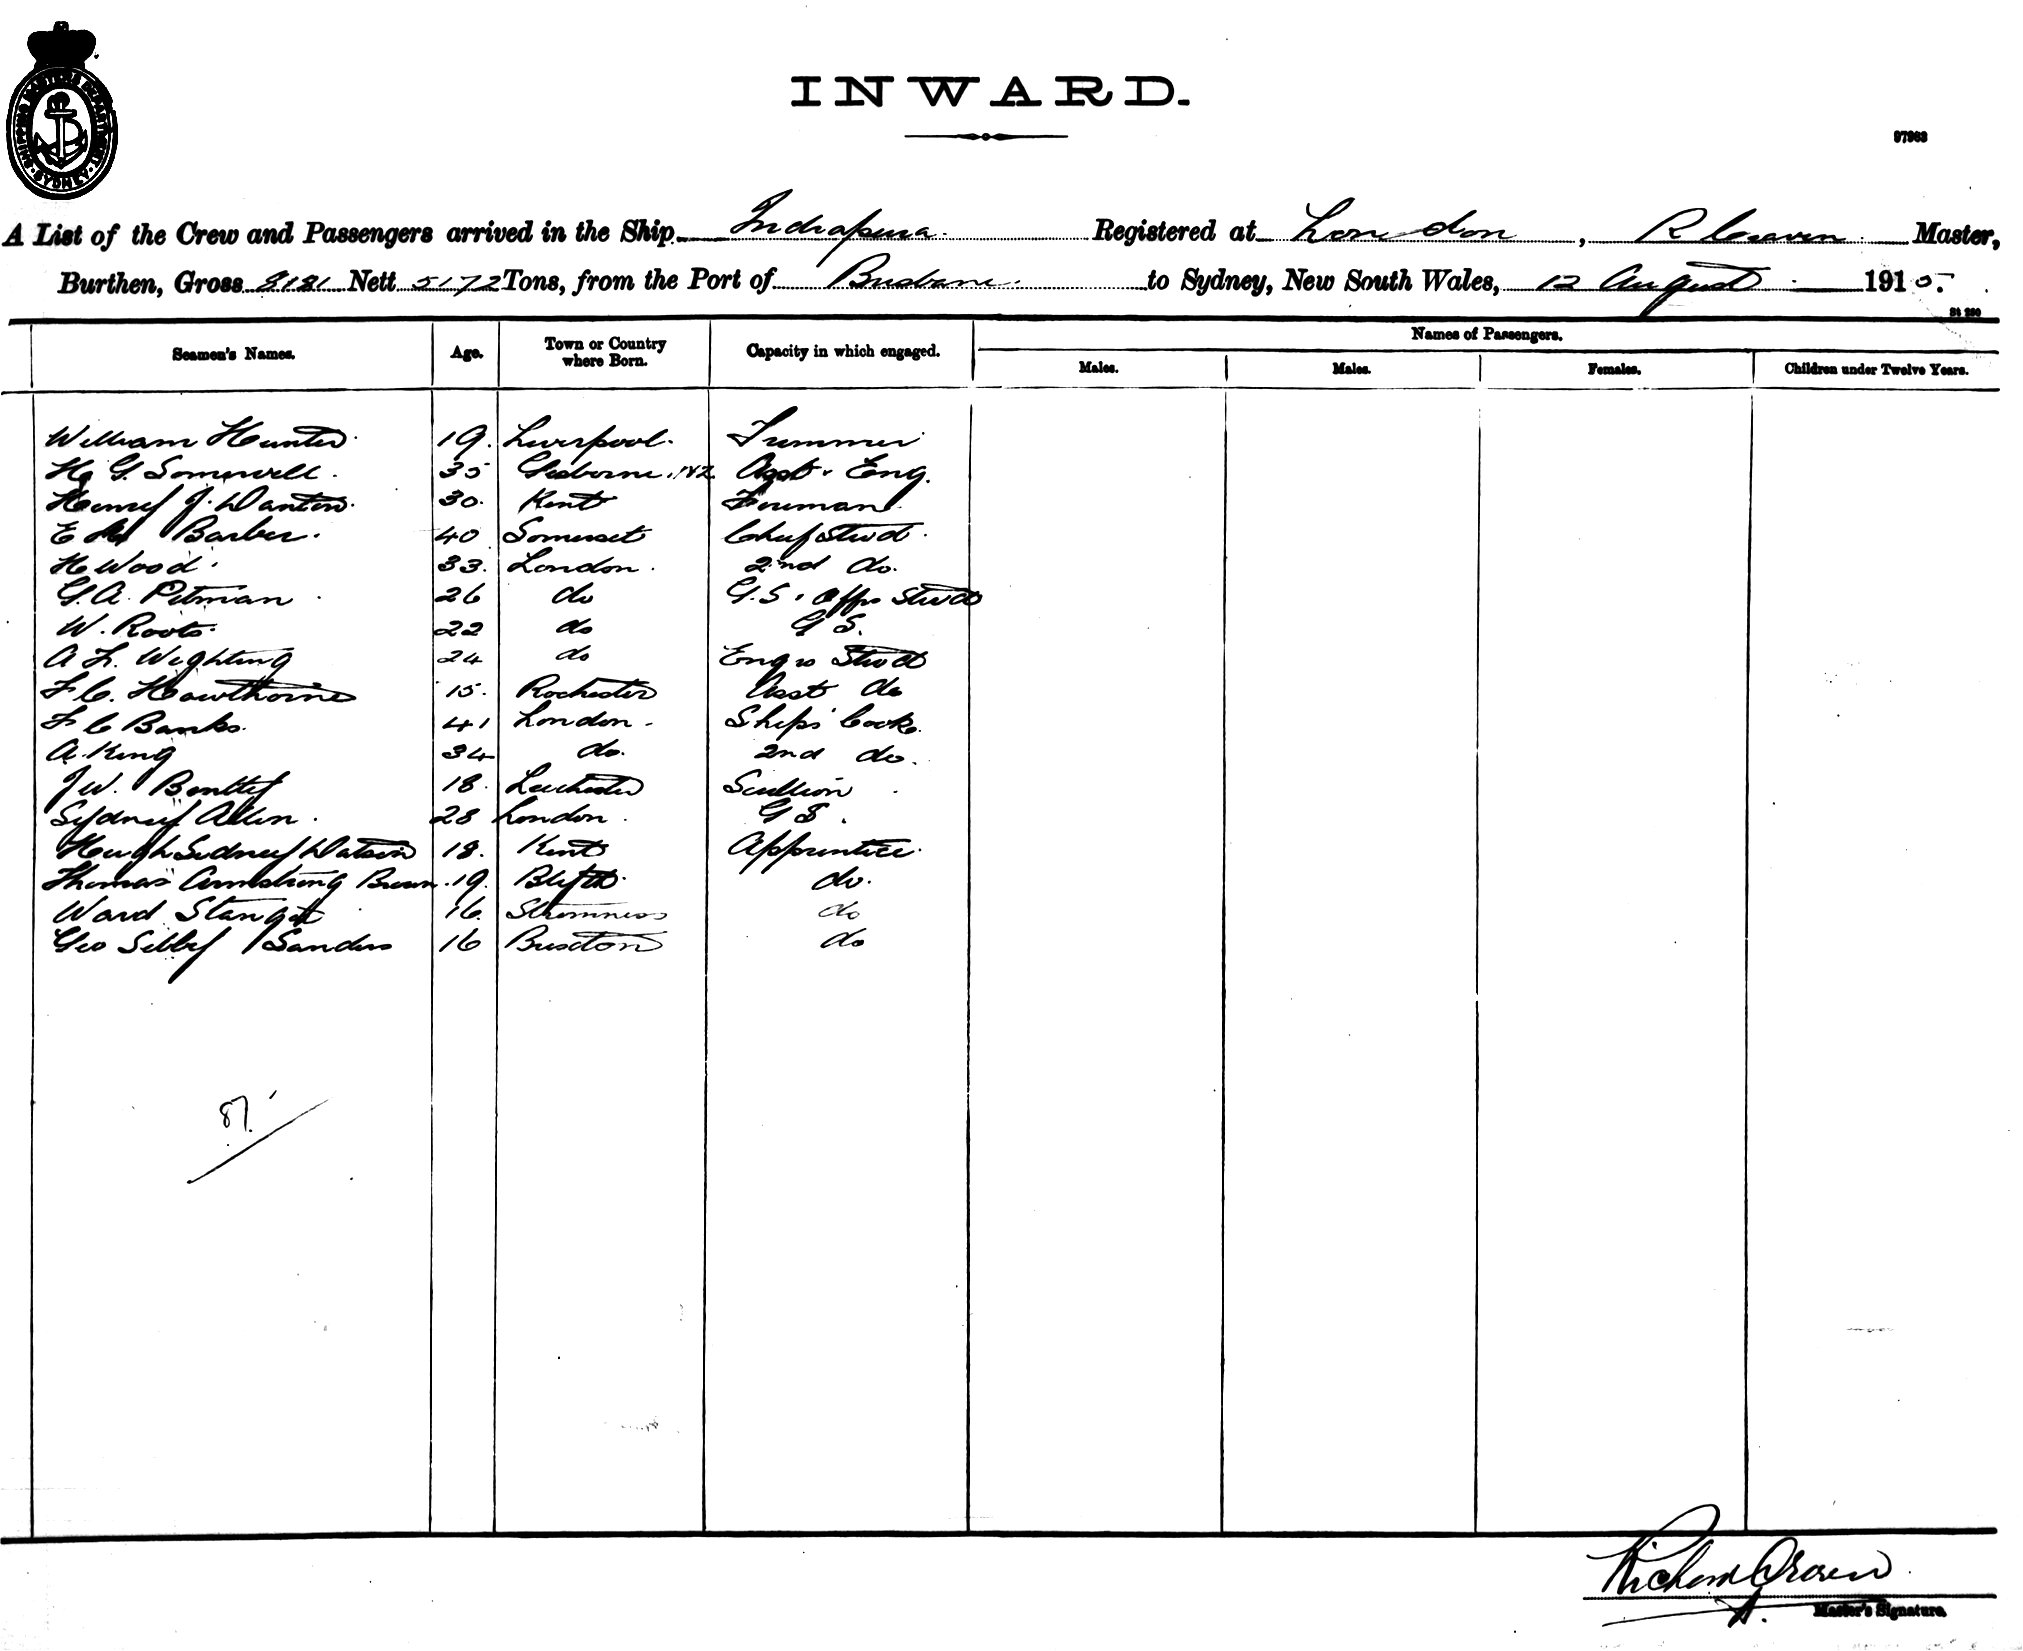 SHIPPING MASTERS DEPARTMENT. SYDNEY.
INWARD.
97963
A List of the Crew and Passengers arrived in the Ship Indrapura Registered at London, R Craven Master,
Burthen, Gross 8181 Nett 5172 Tons, from the Port of Brisbane to Sydney, New South Wales, 12 August 1915.
Names of Passengers.
Seamen's Names. Age. Town or Country where Born. Capacity in which engaged. Males. Males. Females. Children under Twelve Years.
William Hunter 19. Liverpool. Trimmer
H G. Somervell. 35 Gisborne. Asst. Eng.
Henry J. Danton. 30. Kent Fireman
E Barber. 40 Somerset Chief Stwd.
H Wood. 33. London. 2nd do.
G. A. Pitman 26 do G.S. & Offrs Stwd
W. Roots. 22 do G S.
A L. Wighting 24 do Engrs Stwd
F C. Hawthorine 15. Rochester Asst do
F C Banks. 41 London. Ships' Cook.
A. King 34 do. 2nd do.
J W. Bentley 18. Leichester Scullion
Sydney Allen. 28 London. G S.
Hugh Sidney Watson 18. Kent Apprentice.
Thomas Armstrong Brown. 19. Blyth. do.
Ward Stanger 16. Stromness do
Geo Sibley Sanders 16 Buxton do
87.
Richard Craven
Master's Signature.